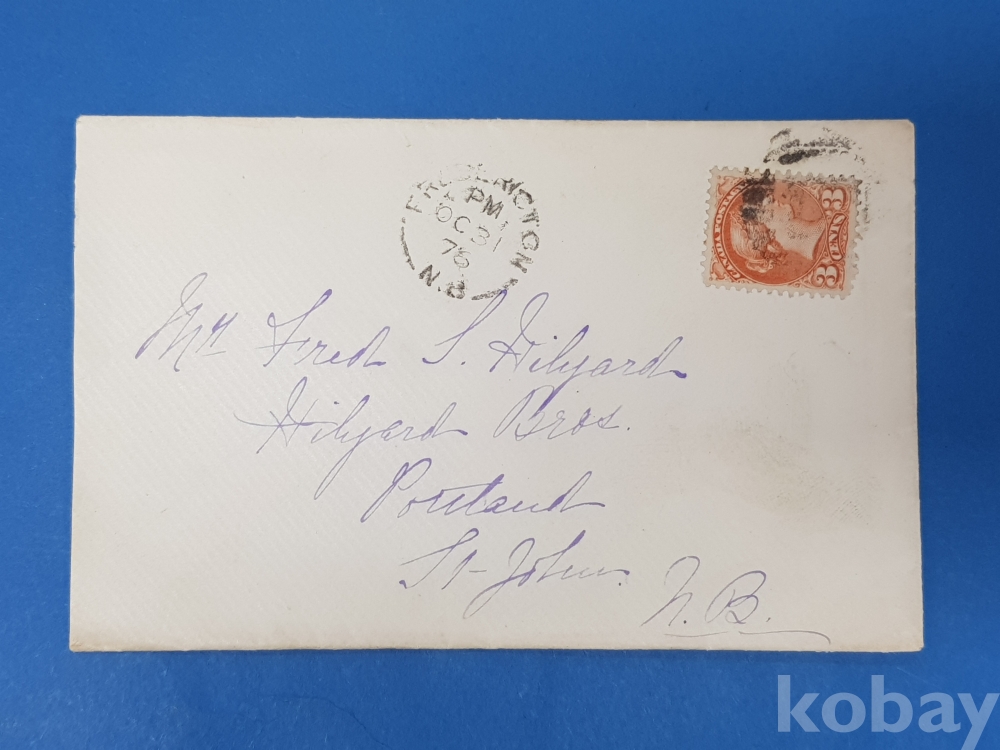 FREDERICTON N.B.
PM
OC 31
CANADA POSTAGE
3 CENTS 3
Mr Fred S. Hilyard
Hilyard Bros.
Portland
St-John
N.B.
kobay